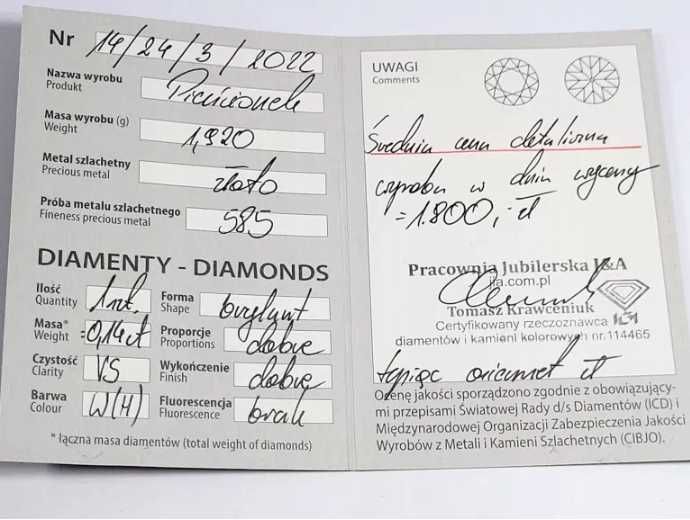 Nr 14/24/3/2022
Nazwa wyrobu Pierścionek
Produkt
Masa wyrobu (g) 1,920
Weight
Metal szlachetny złoto
Precious metal
Próba metalu szlachetnego 585
Fineness precious metal
DIAMENTY - DIAMONDS
Ilość 1szt. Forma brylant
Quantity Shape
Masa* =0,14ct Proporcje dobre
Weight Proportions
Czystość VS Wykończenie dobre
Clarity Finish
Barwa W(H) Fluorescencja brak
Colour Fluorescence
* łączna masa diamentów (total weight of diamonds)
UWAGI
Comments
Średnia cena detaliczna
wyrobu w dniu wyceny
=1.800,-zł
Pracownia Jubilerska J&A
jja.com.pl
Tomasz Krawceniuk
Certyfikowany rzeczoznawca
diamentów i kamieni kolorowych nr.114465
tysiąc osiemset zł
Ocenę jakości sporządzono zgodnie z obowiązujący-
mi przepisami Światowej Rady d/s Diamentów (ICD) i
Międzynarodowej Organizacji Zabezpieczenia Jakości
Wyrobów z Metali i Kamieni Szlachetnych (CIBJO).